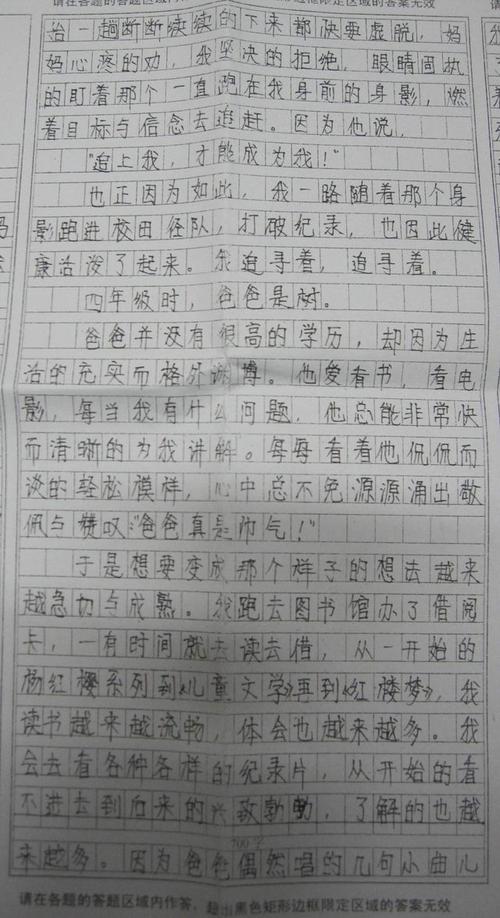 请在各题的答题区域内作答,超出黑色矩形边框限定区域的答案无效
始一趟断断续续的下来都快要虚脱,妈
妈心疼的劝,我坚决的拒绝,眼睛固执
的盯着那个一直跑在我身前的身影,燃
着目标与信念去追赶。因为他说,
“追上我,才能成为我!”
也正因为如此,我一路随着那个身
影跑进校田径队,打破纪录,也因此健
康活泼了起来。我追寻着,追寻着。
四年级时,爸爸是树。
爸爸并没有很高的学历,却因为生
活的充实而格外渊博。他爱看书,看电
影,每当我有什么问题,他总能非常快
而清晰的为我讲解。每每看着他侃侃而
谈的轻松模样,心中总不免源源涌出敬
佩与赞叹:“爸爸真是帅气!”
于是想要变成那个样子的想法越来
越急切与成熟。我跑去图书馆办了借阅
卡,一有时间就去读去借,从一开始的
杨红樱系列到《儿童文学》再到《红楼梦》,我
读书越来越流畅,体会也越来越多。我
会去看各种各样的纪录片,从开始的看
不进去到后来的兴致勃勃,了解的也越
700字
来越多。因为爸爸偶然唱的几句小曲儿
请在各题的答题区域内作答,超出黑色矩形边框限定区域的答案无效